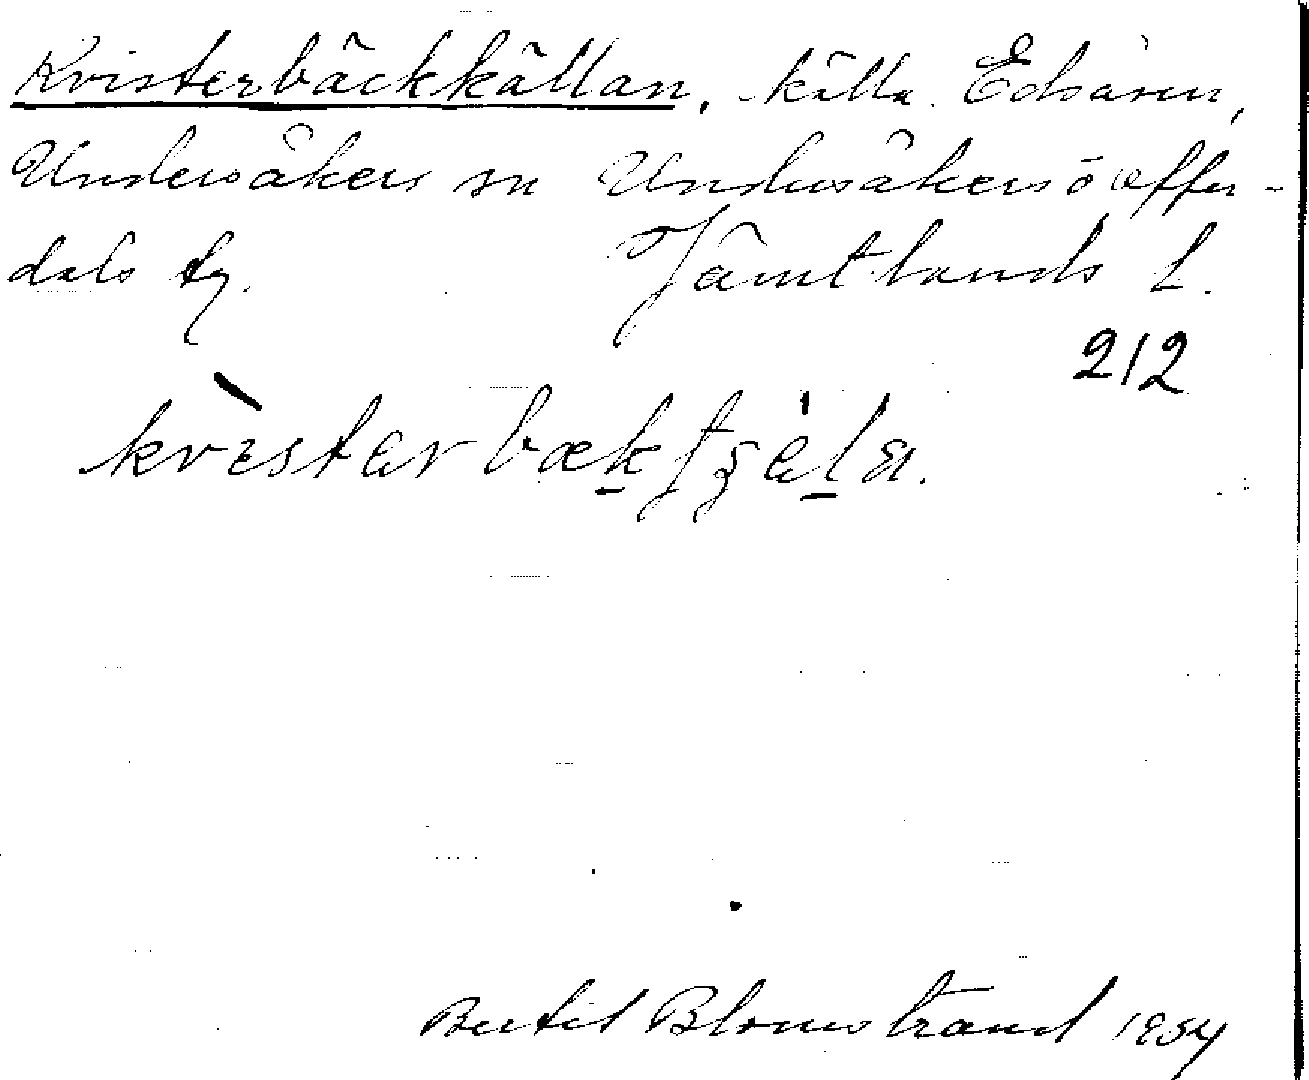 Kvisterbäckkällan, källa. Edsåsen,
Undersåkers sn Undersåkers o Offer-
dals tg. Jämtlands l.
212
Bertil Blomstrand 1954